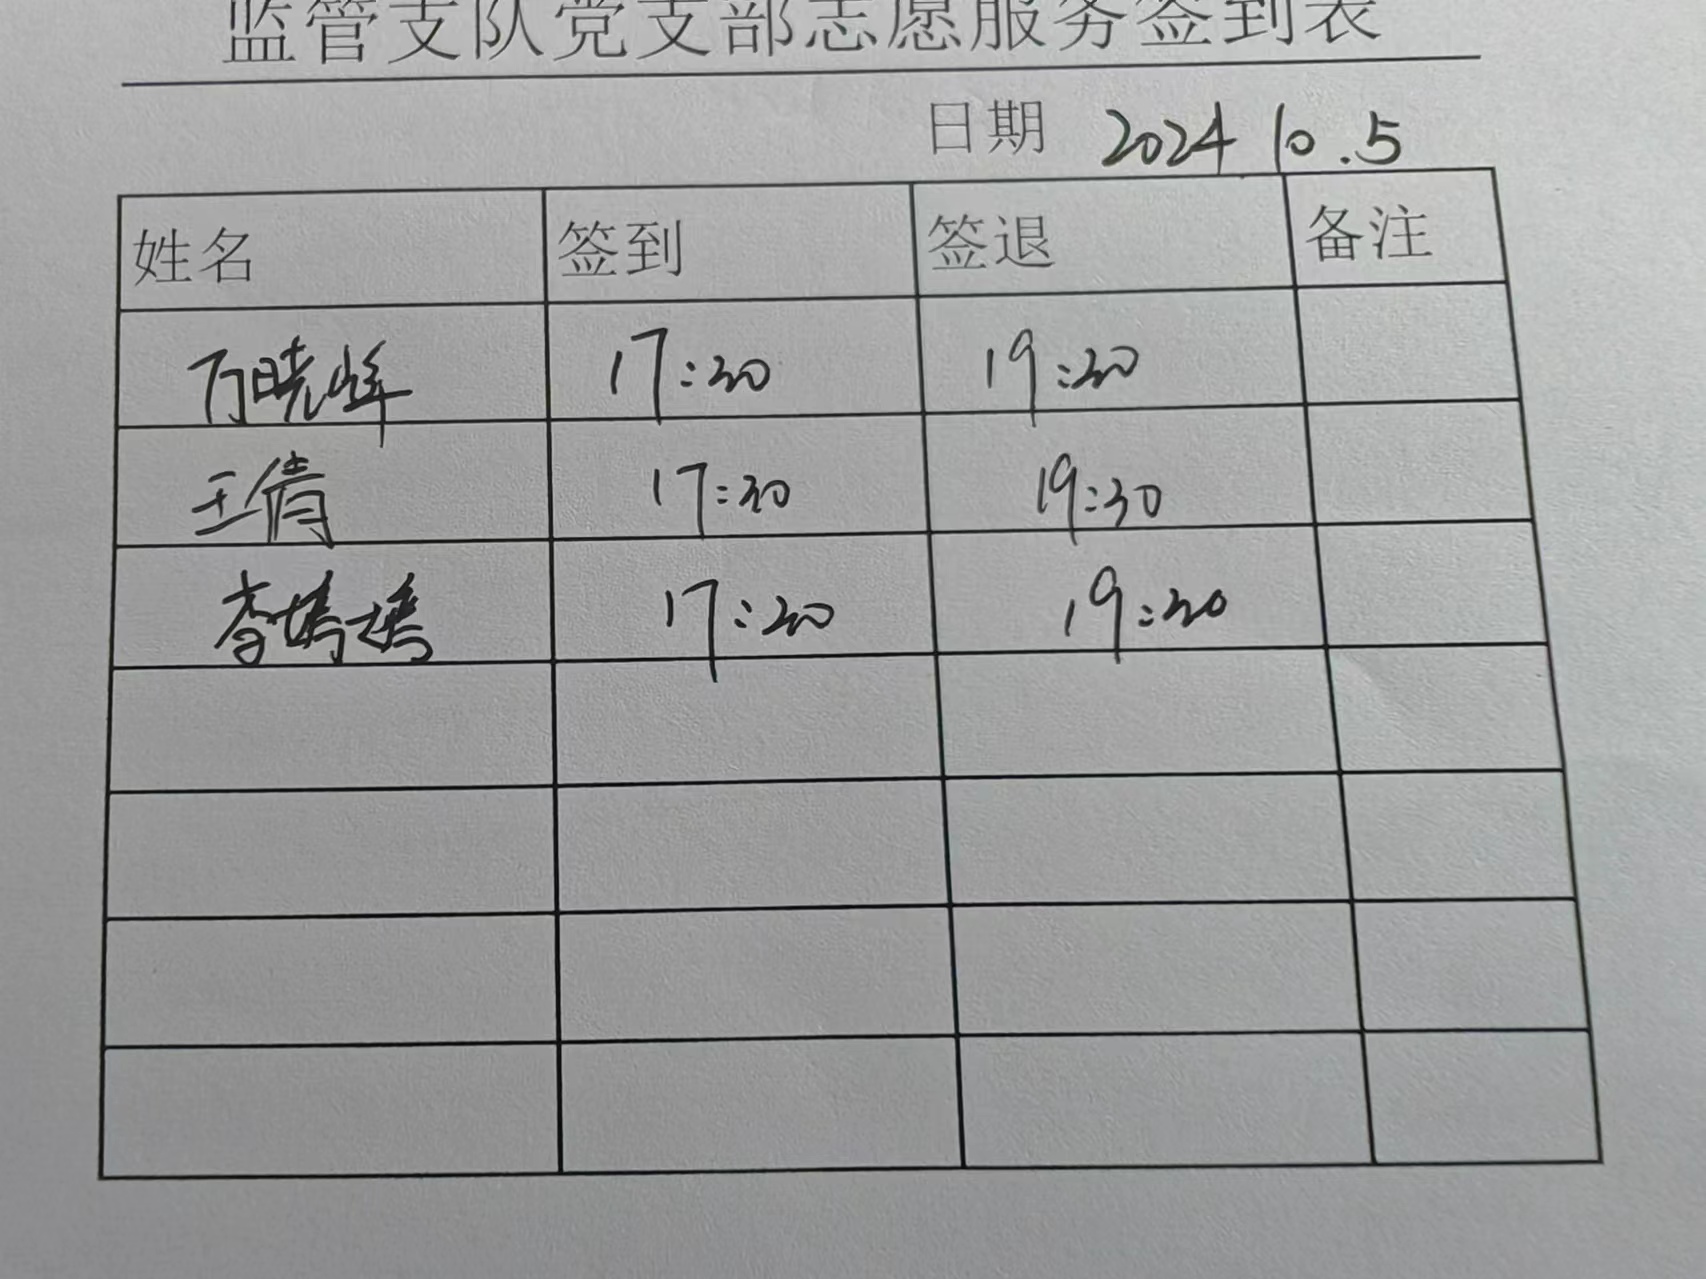 监管支队党支部志愿服务签到表
日期 2024 10.5
姓名 签到 签退 备注
万晓峰 17:30 19:30
王倩 17:30 19:30
李 17:30 19:30